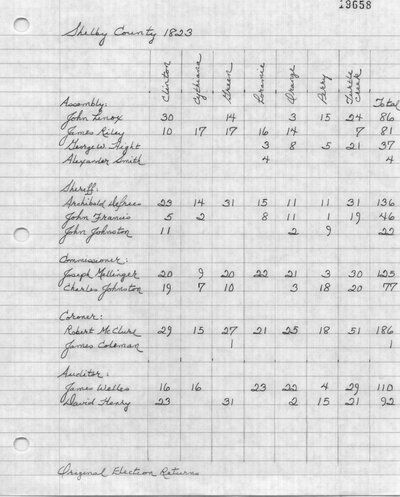 19658
Shelby County 1823
Clinton Cynthiana Green Loramie Orange Perry Turtle Creek Total
Assembly:
John Lenox 30 14 3 15 24 86
James Riley 10 17 17 16 14 7 81
George W. Fleght 3 8 5 21 37
Alexander Smith 4 4
Sheriff:
Archibald Defrees 23 14 31 15 11 11 31 136
John Francis 5 2 8 11 1 19 46
John Johnston 11 2 9 22
Commissioner:
Joseph Mellinger 20 9 20 22 21 3 30 125
Charles Johnston 19 7 10 3 18 20 77
Coroner:
Robert McClure 29 15 27 21 25 18 51 186
James Coleman 1 1
Auditor:
James Welles 16 16 23 22 4 29 110
David Henry 23 31 2 15 21 92
Original Election Returns